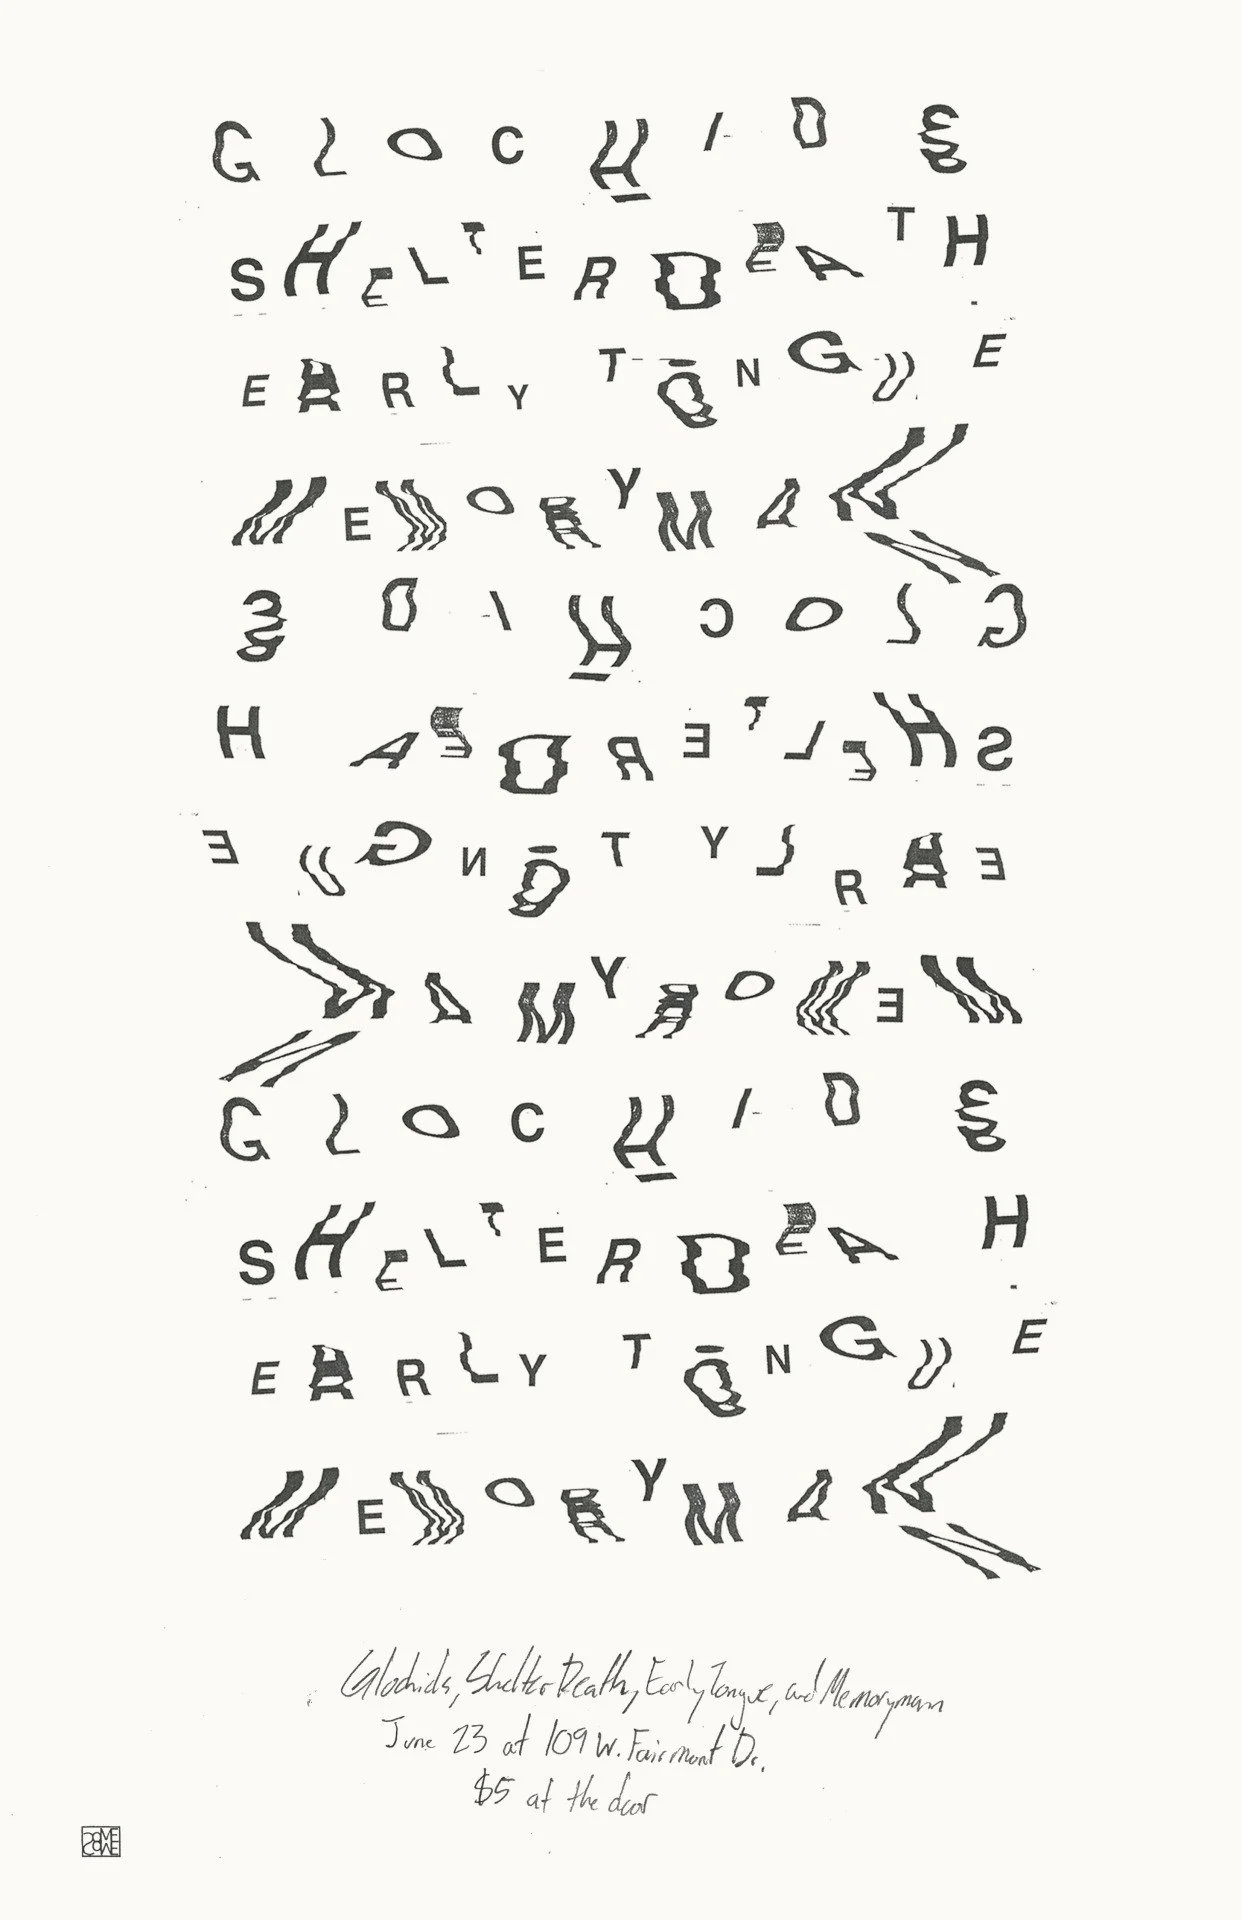 GLOCHIDS
SHELTER DEATH
EARLY TONGUE
MEMORYMAN
GLOCHIDS
SHELTER DE A H
EARLY TONGUE
MEMORYMAN
GLOCHIDS
SHELTER DEA H
EARLY TONGUE
MEMORYMAN
Glochids, Shelter Death, Early Tongue, and Memoryman
June 23 at 109 W. Fairmont Dr.
$5 at the door